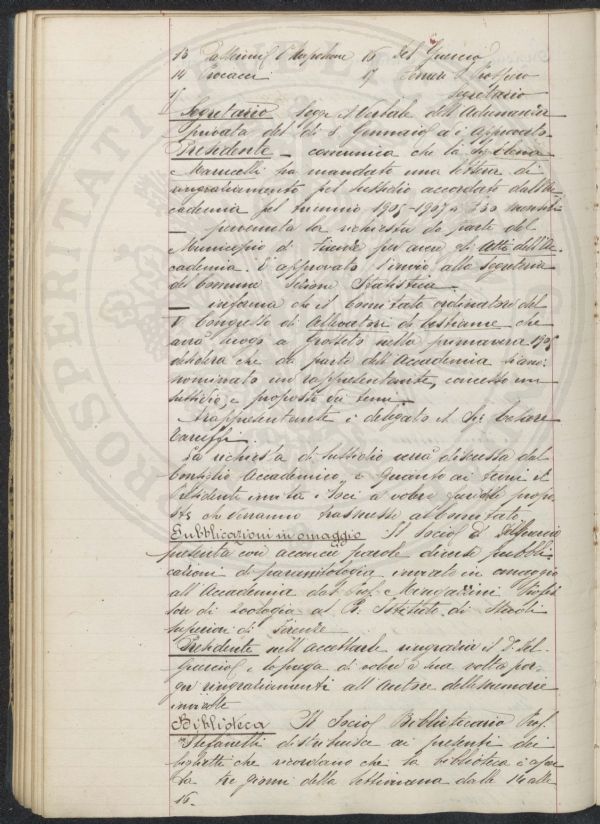 13 Patterini L'Aspettore 16 Del Guercio
14 Procacci 17 Ferrari Prospero
15 Segretario
Segretario Legge il Verbale dell'Adunanza
privata del dì 8 Gennaio ed è approvato
Presidente – comunica che la Sig.
Marucelli ha mandato una lettera di
ringraziamento pel sussidio accordato dall'Ac
cademia pel triennio 1905-1907 a £ 30 mensili
– pervenuta la richiesta da parte del
Municipio di Firenze per avere gli Atti dell'Ac
cademia. È approvato l'invio alla Segreteria
del Comune Sezione Statistica.
– informa che il Comitato ordinatore del
V Congresso di Allevatori di bestiame che
avrà luogo a Grosseto nella primavera 1905
desidera che da parte dell'Accademia siano:
nominato un rappresentante, concesso un
sussidio, e proposti dei temi.–
A rappresentante è delegato il Sig. Cesare
Taruffi.
La richiesta di sussidio sarà discussa dal
Consiglio Accademico e quanto ai temi il
Presidente invita i Soci a voler fare delle propo
ste che verranno trasmesse al Comitato
Pubblicazioni in omaggio Il Socio D. Del Guercio
presenta con acconcie parole diverse pubbli
cazioni di parassitologia inviate in omaggio
all'Accademia dal Prof. Mingazzini Profes
sore di Zoologia al R. Istituto di Studi
superiori di Firenze
Presidente nell'accettarle ringrazia il D. Del
Guercio e lo prega di voler a sua volta por
ger ringraziamenti all'Autore delle memorie
inviate
Biblioteca Il Socio Bibliotecario Prof.
Stefanelli distribuisce ai presenti dei
biglietti che ricordano che la biblioteca è aper
ta tre giorni della settimana dalle 14 alle
16.
PROSPERITATI